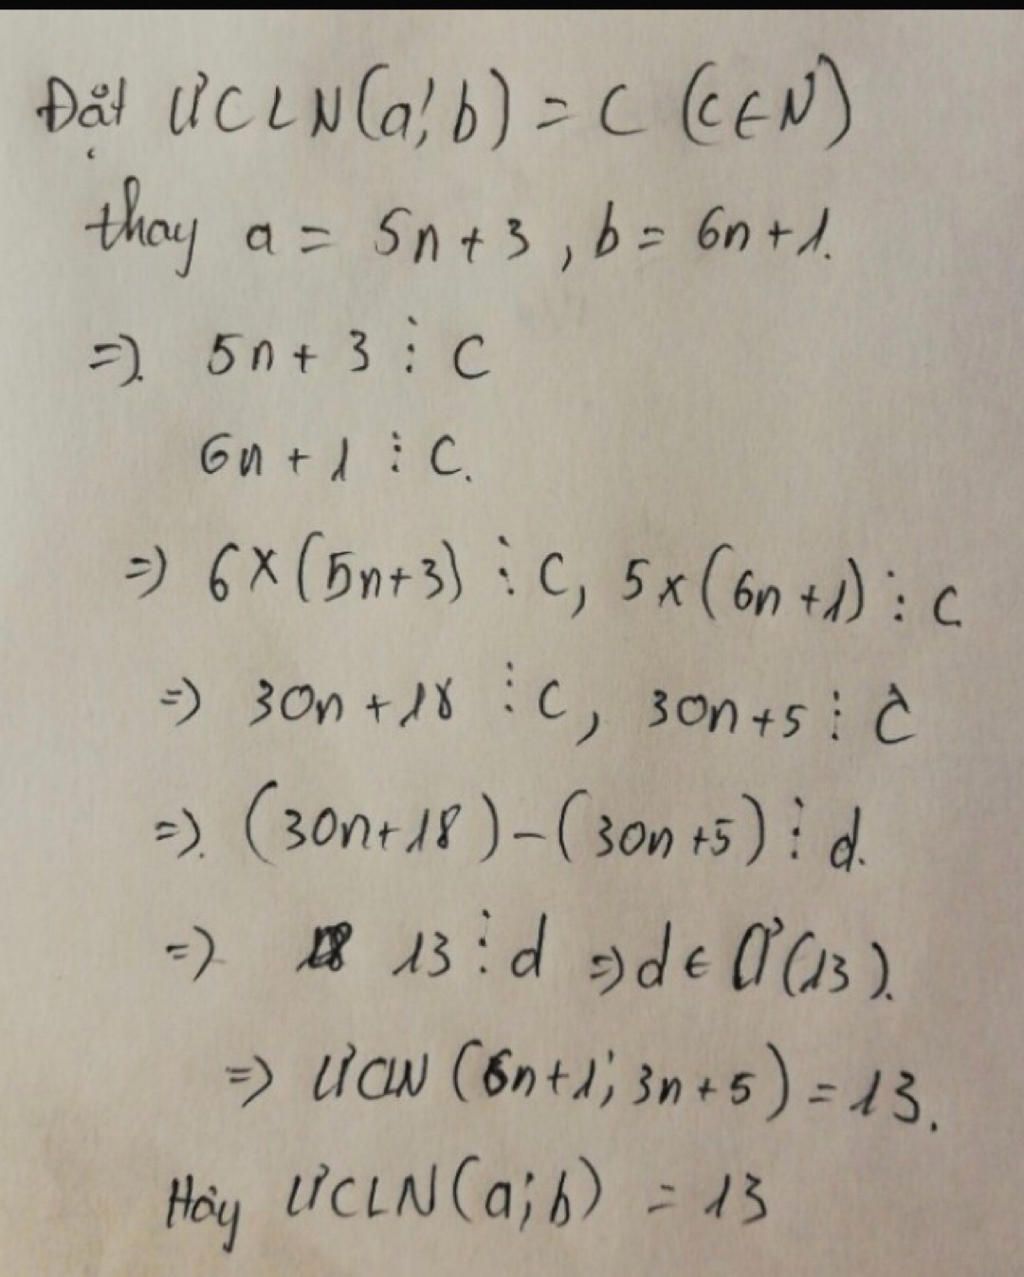 Đặt ƯCLN(a;b) = C (C ∈ N)
thay a = 5n + 3 , b = 6n + 1.
=>. 5n + 3 ⋮ C
6n + 1 ⋮ C.
=> 6 × (5n+3) ⋮ C, 5 × (6n + 1) ⋮ C
=> 30n + 18 ⋮ C, 30n + 5 ⋮ C
=>. (30n + 18) - (30n + 5) ⋮ d.
=>. 13 ⋮ d => d ∈ Ư(13).
=> ƯCLN (6n + 1; 3n + 5) = 13.
Hay ƯCLN(a;b) = 13